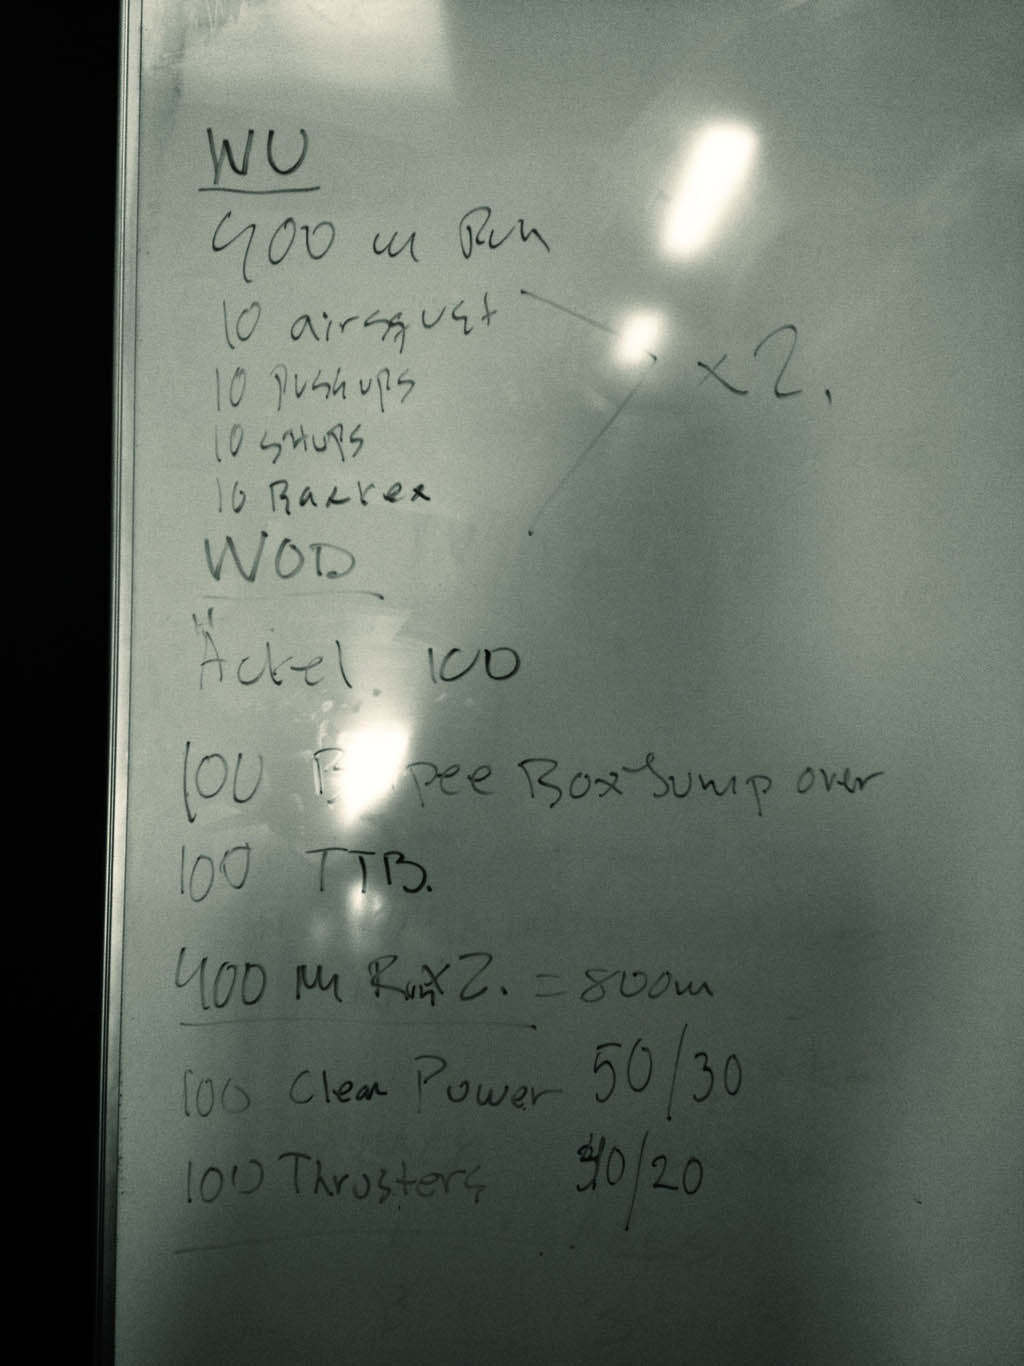 WU
400 m Run
10 airsquat
10 Pushups
10 situps
10 Backex
x 2.
WOD
Äckel 100
100 Burpee Box Jump over
100 TTB.
400 m Run x 2. = 800m
100 Clean Power 50/30
100 Thrusters /20